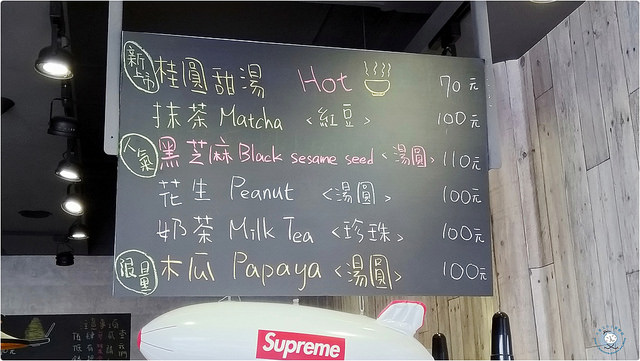 新上市 桂圓甜湯 Hot 70元
抹茶 Matcha <紅豆> 100元
人氣 黑芝麻 Black sesame seed <湯圓> 110元
花生 Peanut <湯圓> 100元
奶茶 Milk Tea <珍珠> 100元
限量 木瓜 Papaya <湯圓> 100元
Supreme